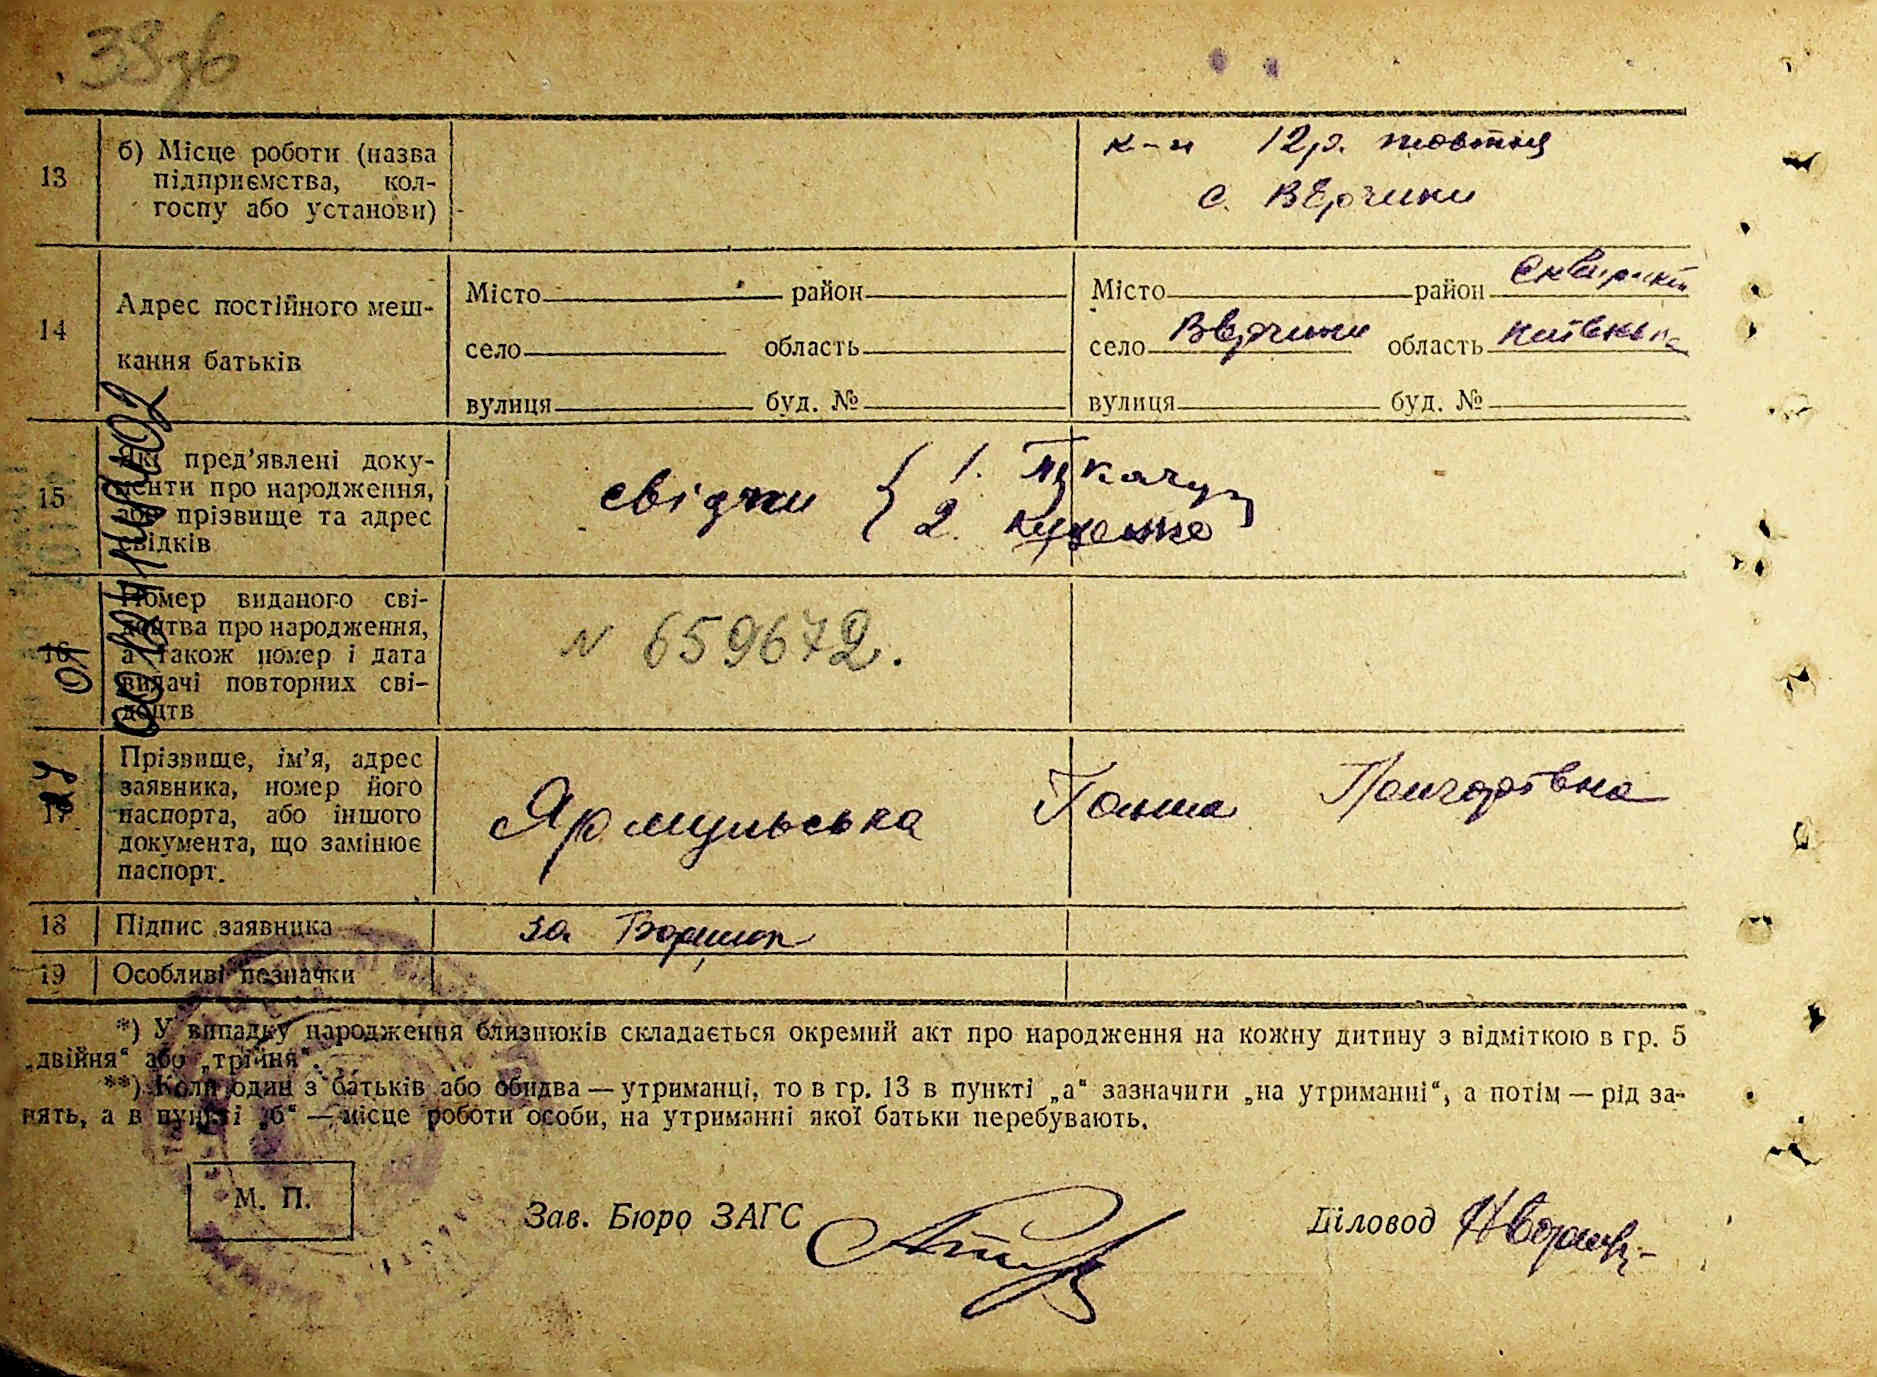 38зв
13
б) Місце роботи (назва
підприємства, кол-
госпу або установи)
к-п 12р. жовтня
с. Верчики
14
Адрес постійного меш-
кання батьків
Місто район
село область
вулиця буд. №
Місто район Сквирськ
село Верчики область Київська
вулиця буд. №
15
Які пред’явлені доку-
менти про народження,
або прізвище та адрес
свідків
свідки { 1.
2. Куценко
16
Номер виданого сві-
доцтва про народження,
а також номер і дата
видачі повторних сві-
доцтв
N 659672.
17
Прізвище, ім’я, адрес
заявника, номер його
паспорта, або іншого
документа, що замінює
паспорт.
Ярмульська Ганна Григорівна
18 Підпис заявника
за
19 Особливі позначки
*) У випадку народження близнюків складається окремий акт про народження на кожну дитину з відміткою в гр. 5
„двійня“ або „трійня“.
**) Коли один з батьків або обидва — утриманці, то в гр. 13 в пункті „а“ зазначити „на утриманні“, а потім — рід за-
нять, а в пункті „б“ — місце роботи особи, на утриманні якої батьки перебувають.
М. П.
Зав. Бюро ЗАГС
Діловод